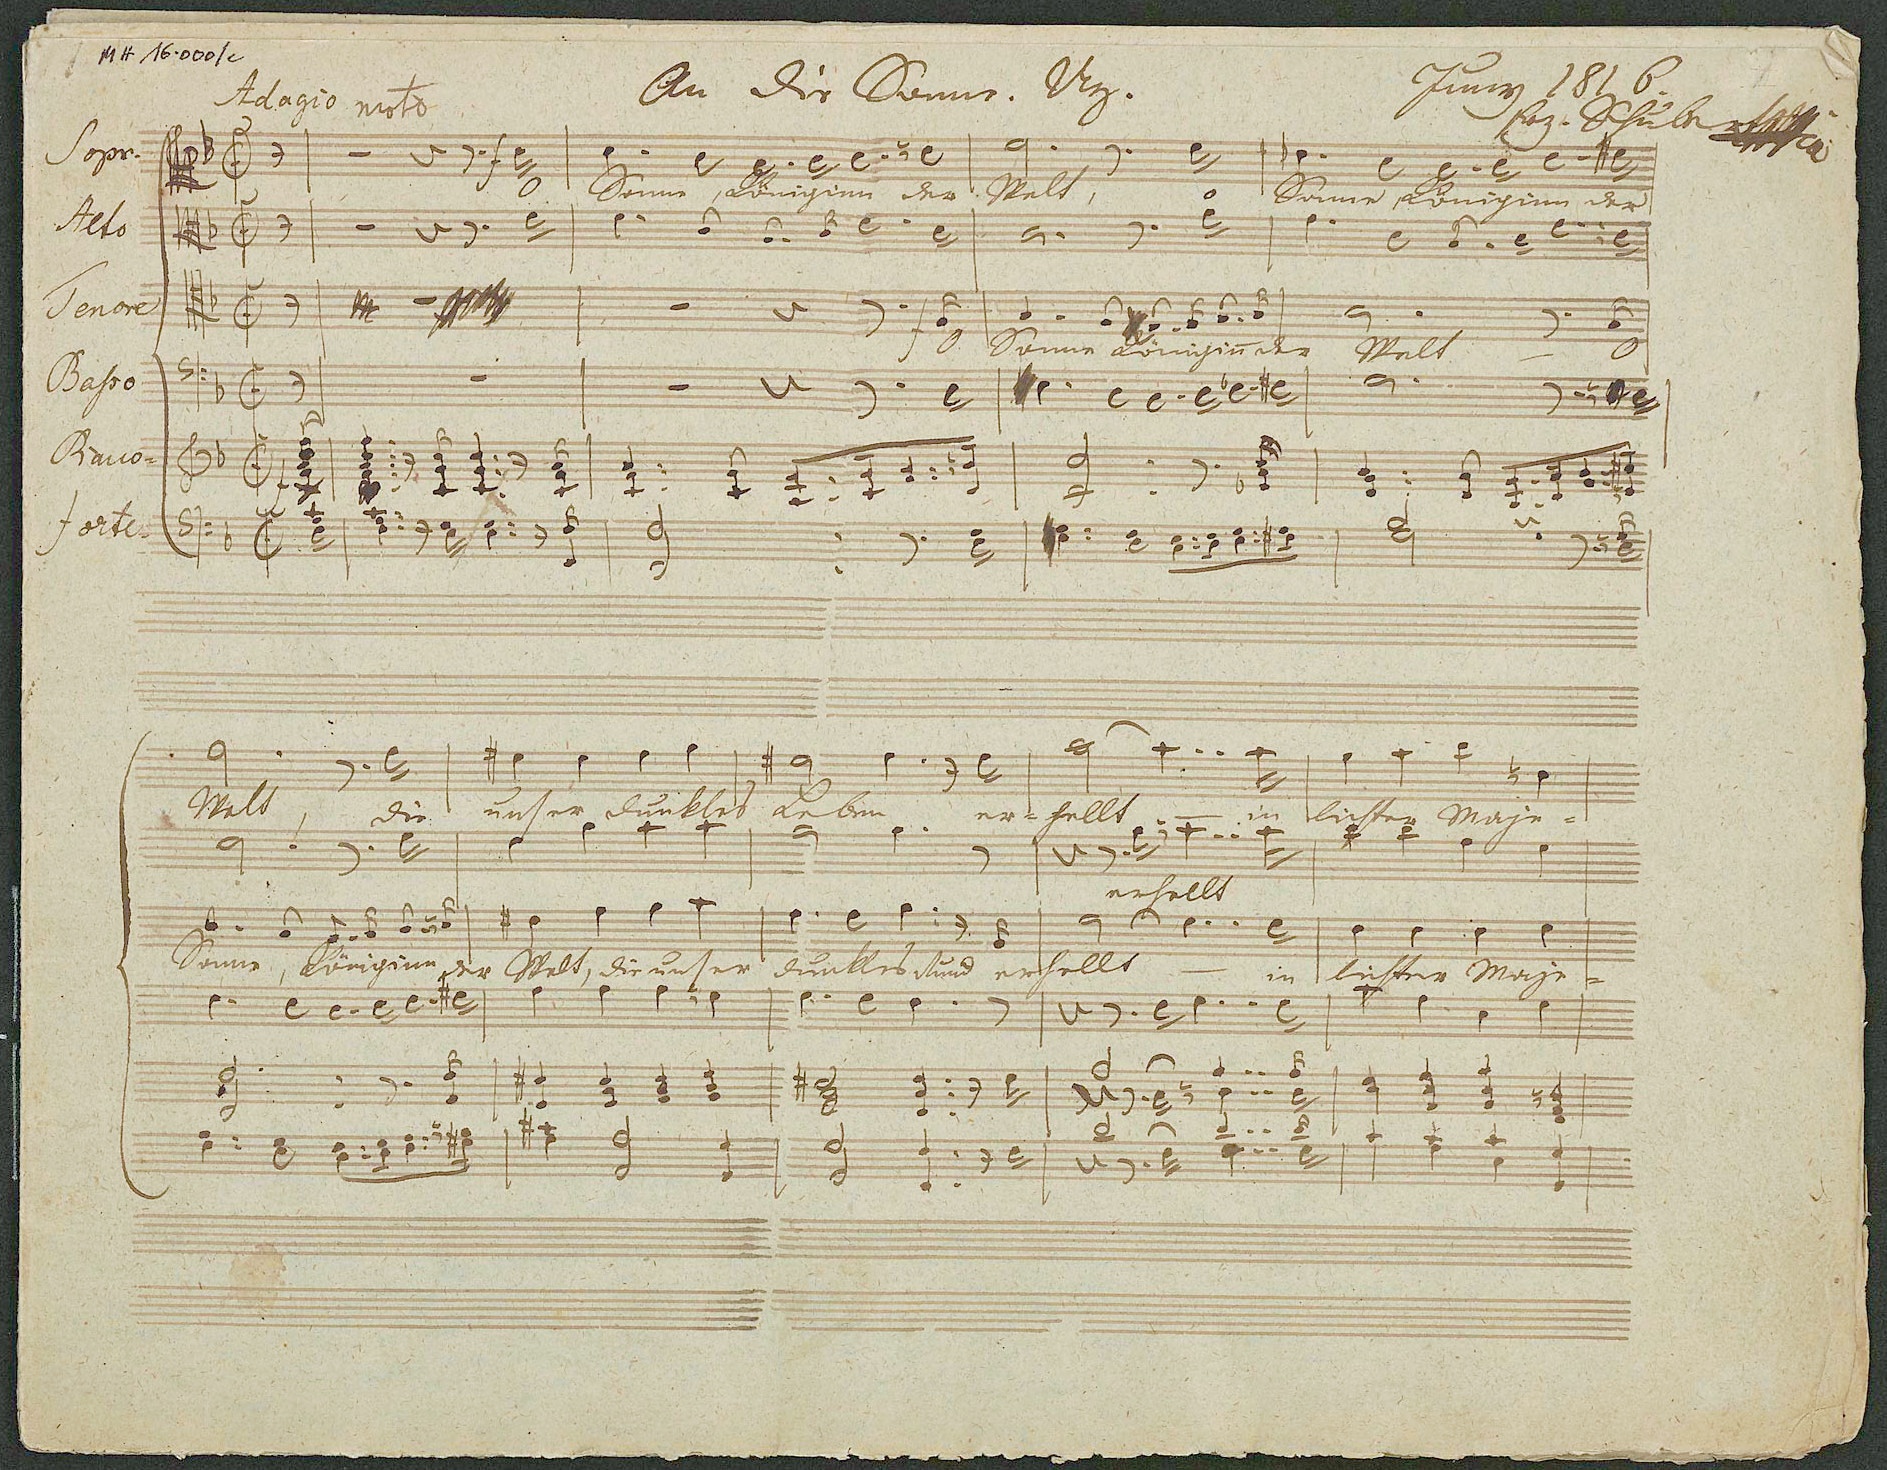 MH 16.000/c
An die Sonne. Uz.
Juny 1816.
Frz. Schubert
Adagio moto
Sopr.
O Sonne, Königinn der Welt, o Sonne, Königinn der
Alto
Tenore
O Sonne Königiñ der Welt O
Basso
Piano=
forte
Welt, die unser dunkles Leben er=hellt in lichter Maje=
erhellt
Sonne, Königinn der Welt, die unser dunkles Rund erhellt in lichter Maje=